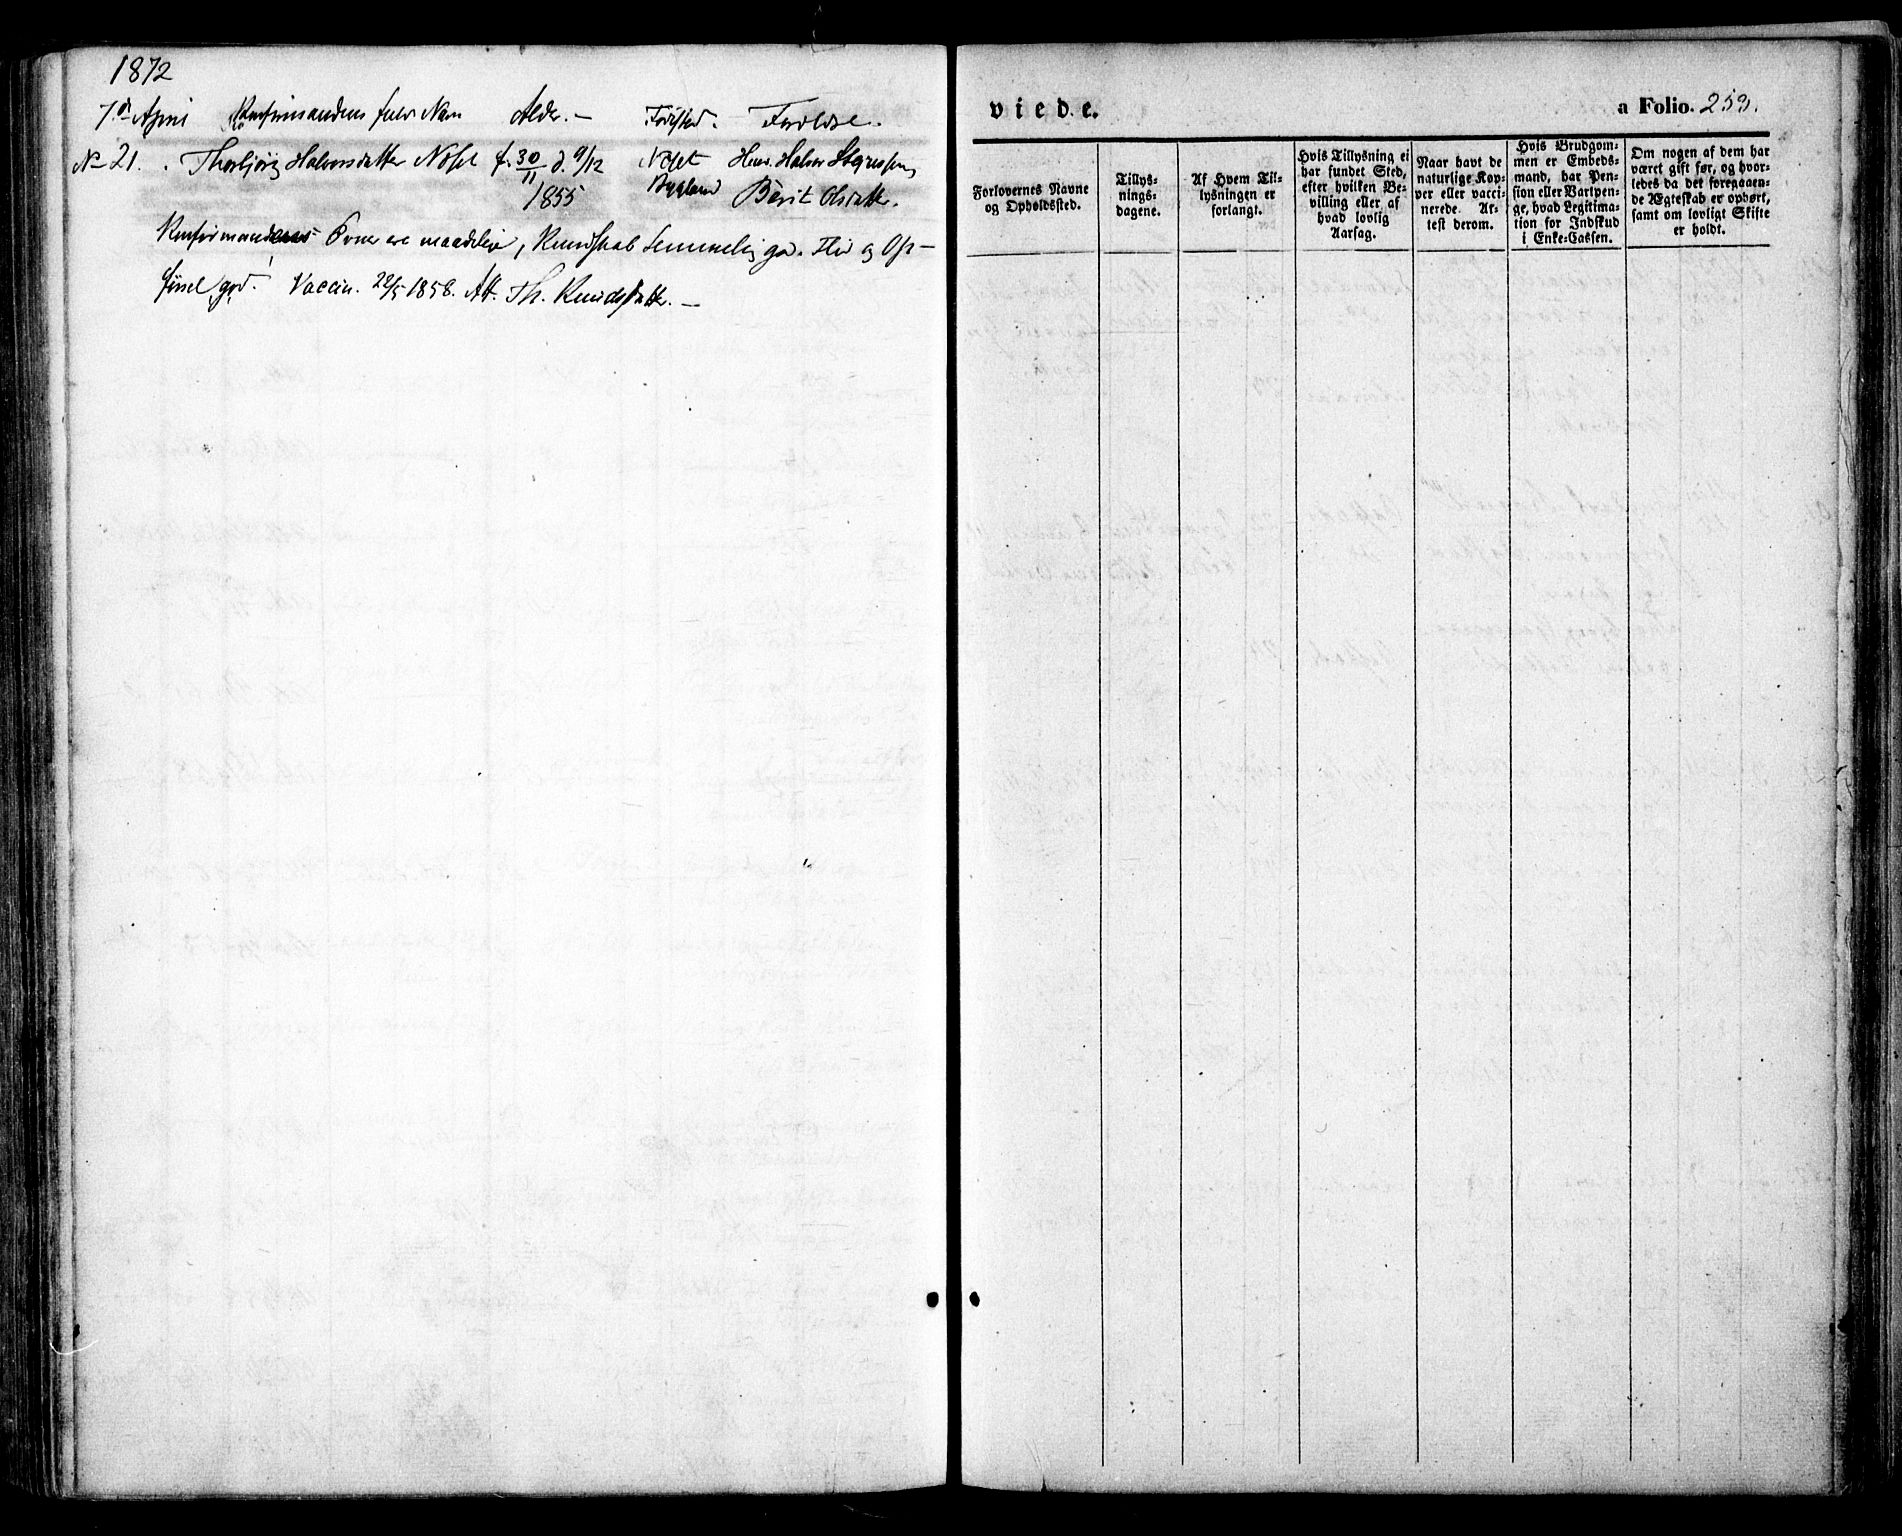 1872
7de April Konfirmandens fulde Navn Alder. — Fødested. Forældre.
No 21. Thorbjørg Halvorsdatter Neset f. 30/11 d. 9/12 Neset Huusm. Halvor
1855 Bygland Berit Olsdatter.
Konfirmandens Evner ere maadelige, Kundskab temmelig go. Flid og Op-
førsel god. Vaccin. 22/5 1858. Att. Th. Knudsdatter. —
viede.
a Folio. 259.
Forlovernes Navne
og Opholdssted.
Tillys-
nings-
dagene.
Af Hvem Til-
lysningen er
forlangt.
Hvis Tillysning ei
har fundet Sted,
efter hvilken Be-
villing eller af
hvad lovlig
Aarsag.
Naar havt de
naturlige Kop-
per eller vacci-
nerede. At-
test derom.
Hvis Brudgom-
men er Embeds-
mand, har Pen-
sion eller Vartpen-
ge, hvad Legitima-
tion for Indskud
i Enke-Cassen.
Om nogen af dem har
været gift før, og hvor-
ledes da det foregaaen-
de Ægteskab er ophørt,
samt om lovligt Skifte
er holdt.